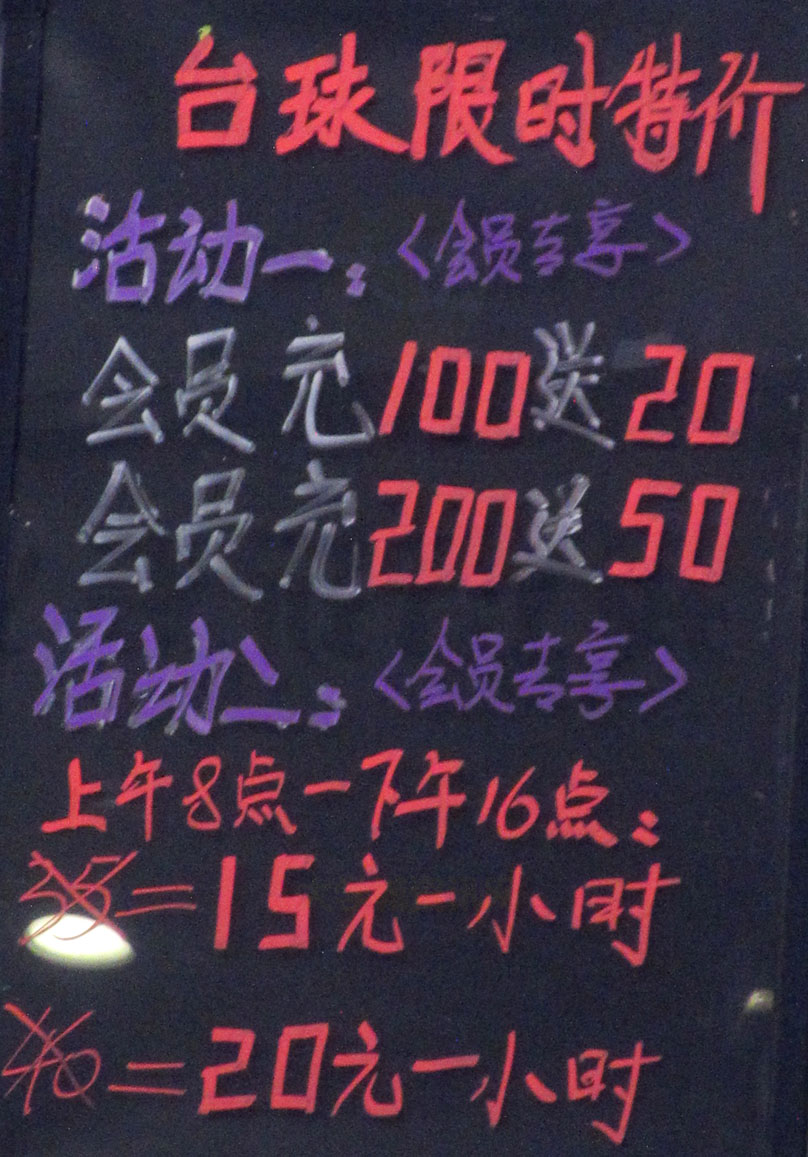 台球限时特价
活动一:<会员专享>
会员充100送20
会员充200送50
活动二:<会员专享>
上午8点一下午16点:
35=15元一小时
40=20元一小时